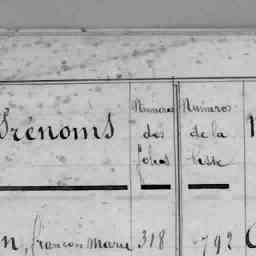 Prénoms
Numéros des folios
Numéros de la liste
françois marie 318 792